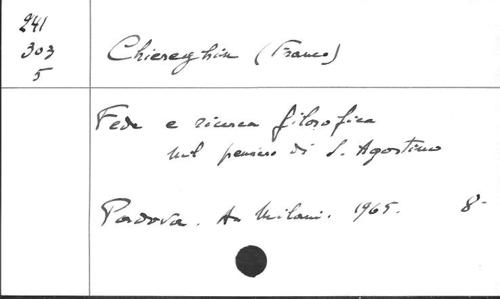 241
303
5
Chiereghin (Franco)
Fede e ricerca filosofica
nel pensiero di S. Agostino
Padova. A. Milani. 1965. 8-